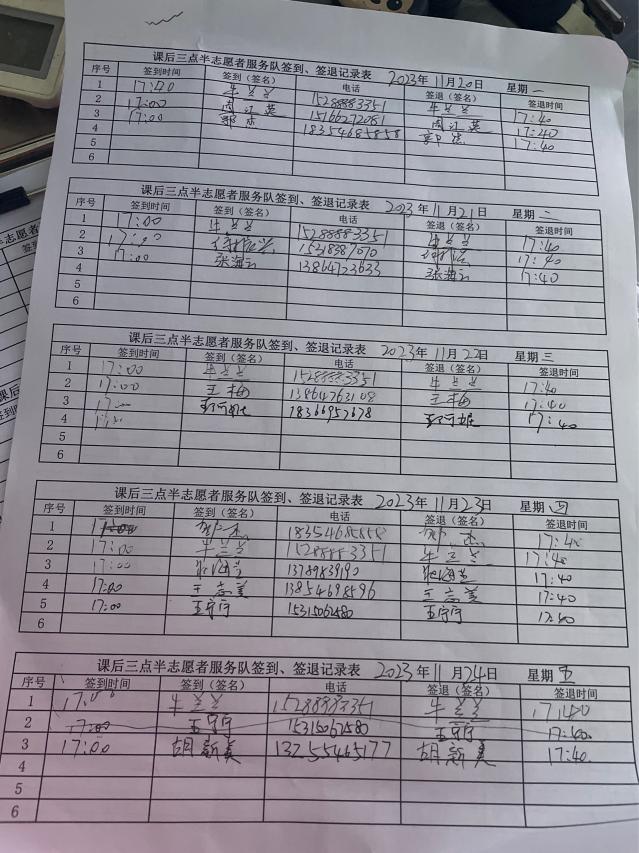 课后三点半志愿者服务队签到、签退记录表 2023年11月20日 星期一
序号 签到时间 签到（签名） 电话 签退（签名） 签退时间
1 17:00 牛兰兰 15288883351 牛兰兰 17:40
2 17:00 周江英 15166272081 周江英 17:40
3 17:00 郭杰 18354685858 郭杰 17:40
4
5
6
课后三点半志愿者服务队签到、签退记录表 2023年11月21日 星期二
序号 签到时间 签到（签名） 电话 签退（签名） 签退时间
1 17:00 牛兰兰 15288883351 牛兰兰 17:40
2 17:00 15318387070 17:40
3 17:00 张海云 13864723633 张海云 17:40
4
5
6
课后三点半志愿者服务队签到、签退记录表 2023年11月22日 星期三
序号 签到时间 签到（签名） 电话 签退（签名） 签退时间
1 17:00 牛兰兰 15288883351 牛兰兰 17:40
2 17:00 王梅 13864763108 王梅 17:40
3 17:00 18366952678 17:40
4
5
6
课后三点半志愿者服务队签到、签退记录表 2023年11月23日 星期四
序号 签到时间 签到（签名） 电话 签退（签名） 签退时间
1 17:00 郭杰 18354685858 郭杰 17:40
2 17:00 牛兰兰 15288883351 牛兰兰 17:40
3 17:00 13789839190 17:40
4 17:00 王志美 13854698596 王志美 17:40
5 17:00 王宁宁 15315062580 王宁宁 17:40
6
课后三点半志愿者服务队签到、签退记录表 2023年11月24日 星期五
序号 签到时间 签到（签名） 电话 签退（签名） 签退时间
1 17:00 牛兰兰 15288883351 牛兰兰 17:40
2 17:00 王宁宁 15315062580 王宁宁 17:40
3 17:00 胡新美 13255465177 胡新美 17:40.
4
5
6